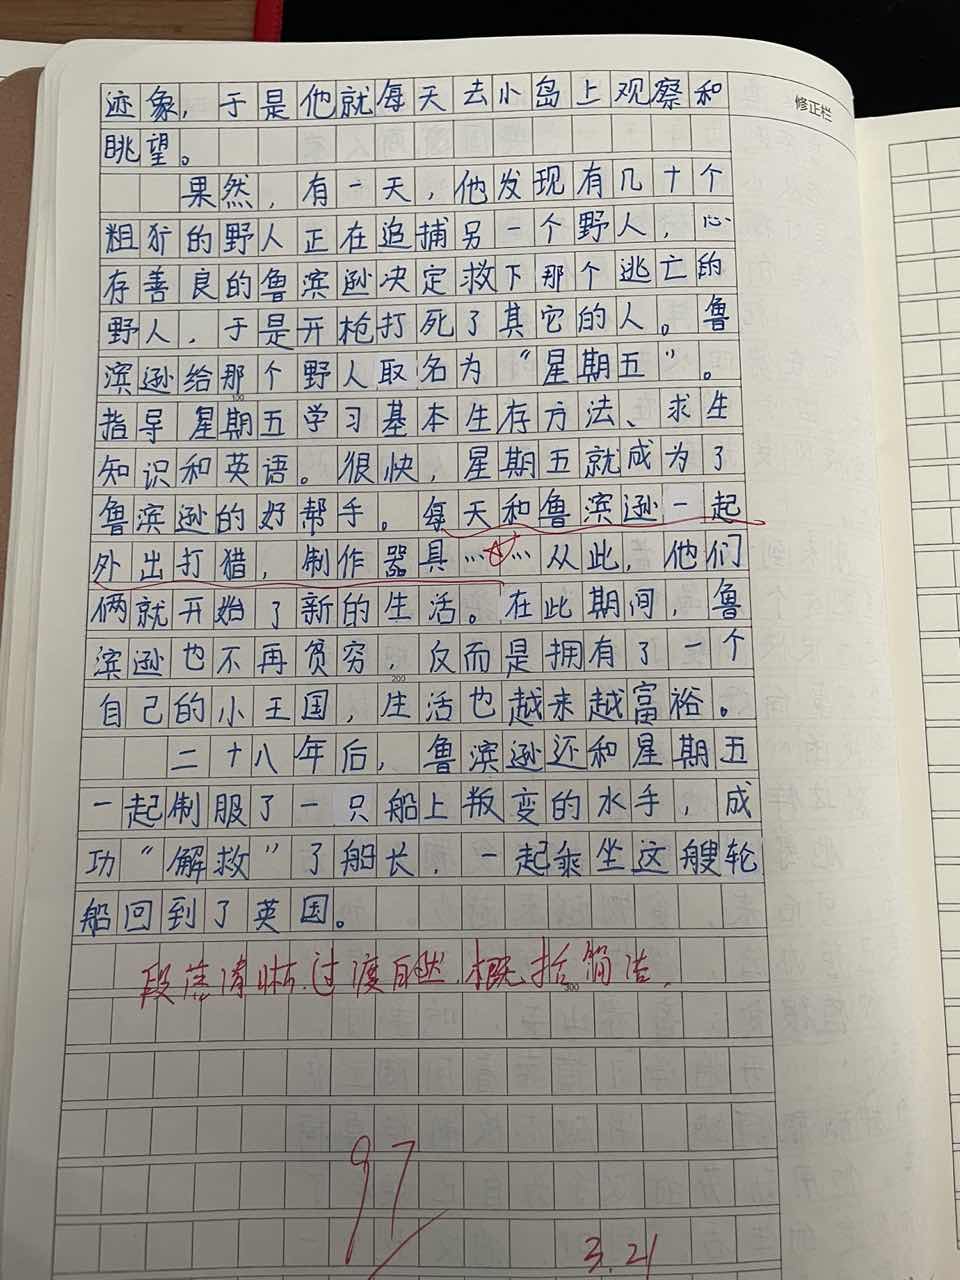 修正栏
迹象，于是他就每天去小岛上观察和
眺望。
果然，有一天，他发现有几十个
粗犷的野人正在追捕另一个野人，心
存善良的鲁滨逊决定救下那个逃亡的
野人，于是开枪打死了其它的人。鲁
滨逊给那个野人取名为“星期五”。
100
指导星期五学习基本生存方法、求生
知识和英语。很快，星期五就成为了
鲁滨逊的好帮手。每天和鲁滨逊一起
外出打猎，制作器具……从此，他们
俩就开始了新的生活。在此期间，鲁
滨逊也不再贫穷，反而是拥有了一个
200
自己的小王国，生活也越来越富裕。
二十八年后，鲁滨逊还和星期五
一起制服了一只船上叛变的水手，成
功“解救”了船长，一起乘坐这艘轮
船回到了英国。
段落清晰，过渡自然，概括简洁。
300
97
3.21